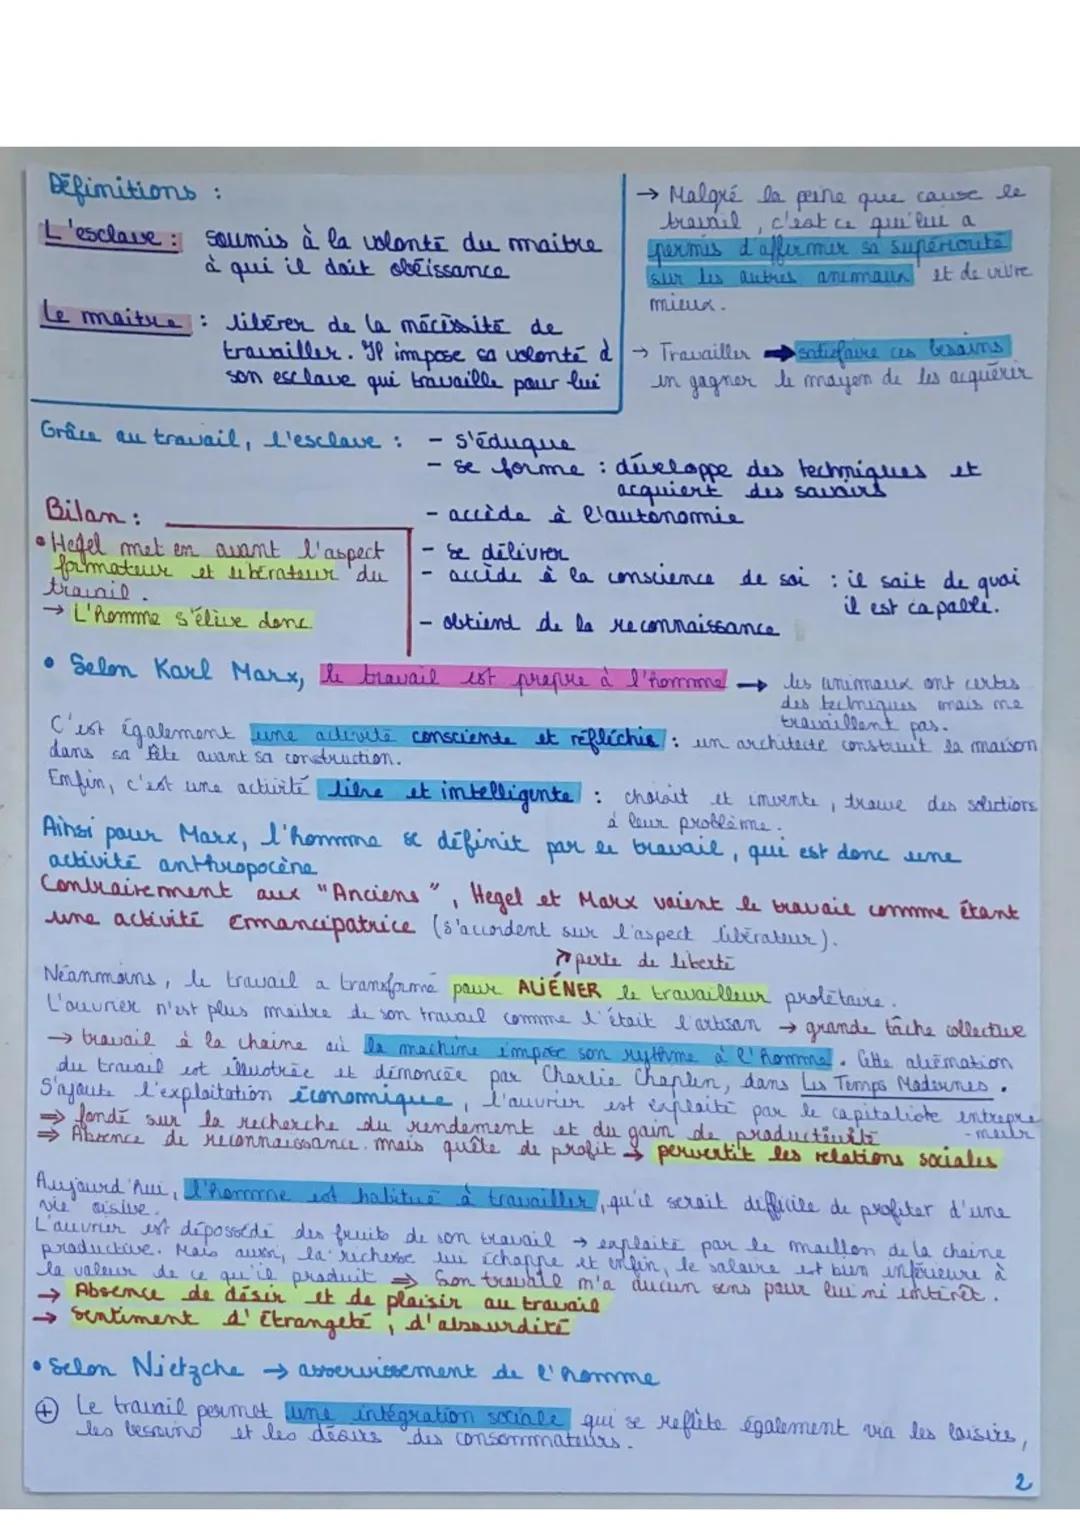 Définitions :
L'esclave : soumis à la volonté du maitre
à qui il doit obéissance
Le maitre : libérer de la nécéssité de
travailler. Il impose sa volonté à
son esclave qui travaille pour lui
→ Malgré la peine que cause le
travail, c'est ce qui lui a
permis d'affirmer sa supériorité
sur les autres animaux et de vivre
mieux.
→ Travailler → satisfaire ces besoins
en gagner le moyen de les acquérir
Grâce au travail, l'esclave : - s'éduque
- se forme : développe des techniques et
acquiert des savoirs
- accède à l'autonomie
- se délivrer
- accède à la conscience de soi : il sait de quoi
il est capable.
- obtient de la reconnaissance
Bilan :
• Hegel met en avant l'aspect
formateur et libérateur du
travail.
→ L'homme s'élève donc
• Selon Karl Marx, le travail est propre à l'homme → les animaux ont certes
des techniques mais ne
travaillent pas.
C'est également une activité consciente et réfléchie : un architecte construit la maison
dans sa tête avant sa construction.
Enfin, c'est une activité libre et intelligente : choisit et invente, trouve des solutions
à leur problème.
Ainsi pour Marx, l'homme se définit par le travail, qui est donc une
activité anthropocène
Contrairement aux "Anciens", Hegel et Marx voient le travail comme étant
une activité émancipatrice (s'accordent sur l'aspect libérateur).
↗ perte de liberté
Néanmoins, le travail a transformé pour ALIÉNER le travailleur prolétaire.
L'ouvrier n'est plus maitre de son travail comme l'était l'artisan → grande tâche collective
→ travail à la chaine où la machine impose son rythme à l'homme. Cette aliénation
du travail est illustrée et dénoncée par Charlie Chaplin, dans Les Temps Modernes.
S'ajoute l'exploitation économique, l'ouvrier est exploité par le capitaliste entrepre
-neur
⇒ fondé sur la recherche du rendement et du gain de productivité
⇒ Absence de reconnaissance. mais quête de profit → pervertit les relations sociales
Aujourd'hui, l'homme est habitué à travailler, qu'il serait difficile de profiter d'une
vie oisive.
L'ouvrier est dépossédé des fruits de son travail → exploité par le maillon de la chaine
productive. Mais aussi, la richesse lui échappe et enfin, le salaire est bien inférieure à
la valeur de ce qu'il produit ⇒ Son travail n'a aucun sens pour lui ni intérêt.
→ Absence de désir et de plaisir au travail
→ Sentiment d'étrangeté, d'absurdité
• Selon Nietzche → asservissement de l'homme
⊕ Le travail permet une intégration sociale qui se reflète également via les loisirs,
les besoins et les désirs des consommateurs.
2